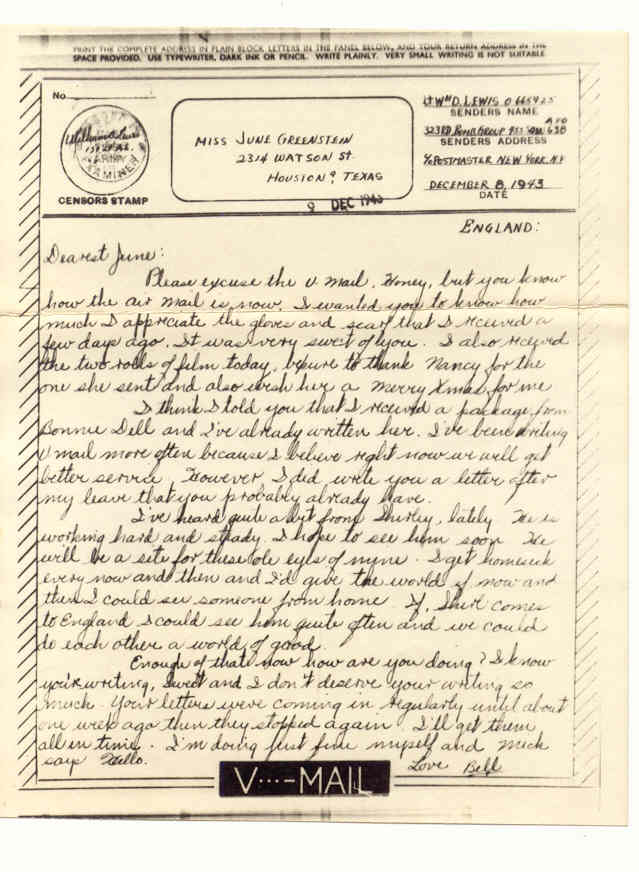 PRINT THE COMPLETE ADDRESS IN PLAIN BLOCK LETTERS IN THE PANEL BELOW, AND YOUR RETURN ADDRESS IN THE
SPACE PROVIDED. USE TYPEWRITER, DARK INK OR PENCIL. WRITE PLAINLY. VERY SMALL WRITING IS NOT SUITABLE.
No.
ARMY
EXAMINER
CENSORS STAMP
MISS JUNE GREENSTEIN
2314 WATSON St.
HOUSTON 9, TEXAS
9 DEC 1943
Lt Wm D. LEWIS O 665925
SENDERS NAME
323RD BOMB GROUP 453 SQD. APO 638
SENDERS ADDRESS
% POSTMASTER NEW YORK N.Y
DECEMBER 8, 1943
DATE
ENGLAND:
Dearest June:
Please excuse the V Mail, Honey, but you know
how the air mail is now. I wanted you to know how
much I appreciate the gloves and scarf that I received a
few days ago. It was very sweet of you. I also received
the two rolls of film today, be sure to thank Nancy for the
one she sent and also wish her a Merry Xmas for me
I think I told you that I received a package from
Bonnie Dell and I've already written her. I've been writing
V mail more often because I believe right now we will get
better service. However I did write you a letter after
my leave that you probably already have.
I've heard quite a bit from Shirley, lately He is
working hard and steady. I hope to see him soon He
will be a site for these ole eyes of myne. I get homesick
every now and then and I'd give the world if now and
then I could see someone from home If, Shirl comes
to England I could see him quite often and we could
do each other a world of good.
Enough of that now how are you doing? I know
you're writing, Sweet and I don't deserve your writing so
much. Your letters were coming in regularly until about
one week ago then they stopped again. I'll get them
all in time. I'm doing just fine myself and Mick
says Hello.
Love Bill
V···—MAIL